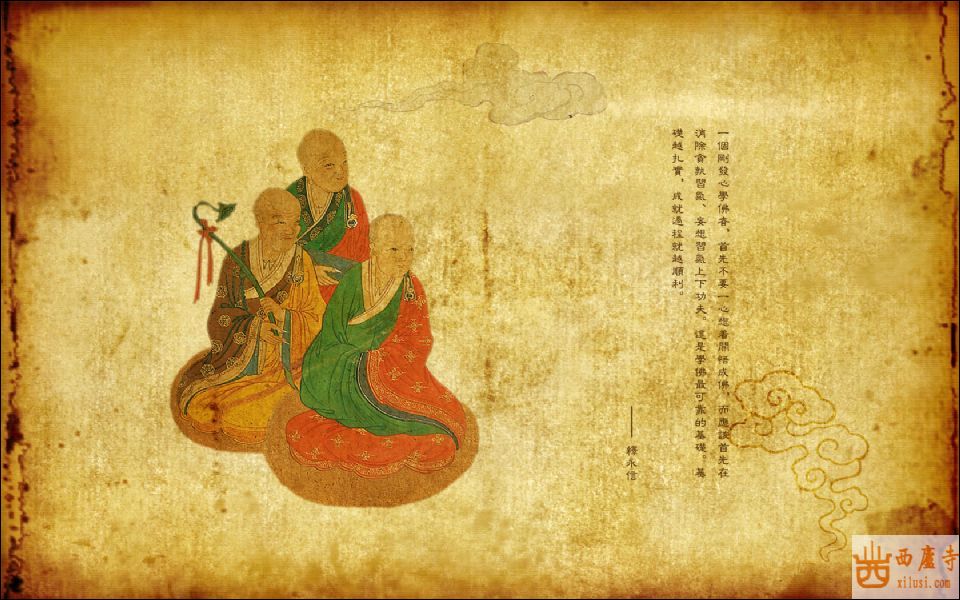 一個剛發心學佛者，首先不要一心想着開悟成佛，而應該首先在
消除貪執習氣、妄想習氣上下功夫。這是學佛最可靠的基礎。基
礎越扎實，成就過程就越順利。
——釋永信
西廬寺
xilusi.com